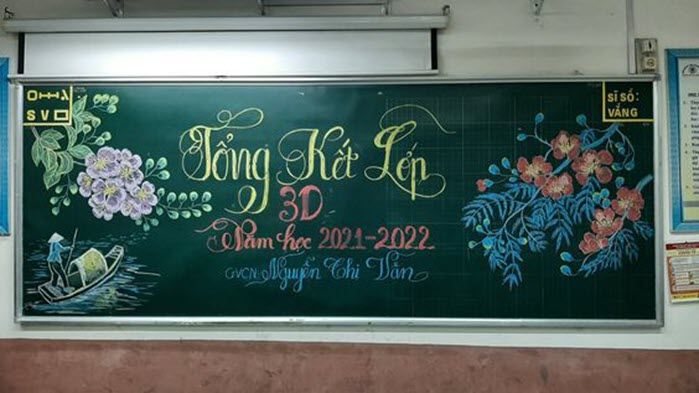 S V
SĨ SỐ:
VẮNG
Tổng Kết Lớp
3D
Năm học 2021-2022
GVCN: Nguyễn Thi Vân